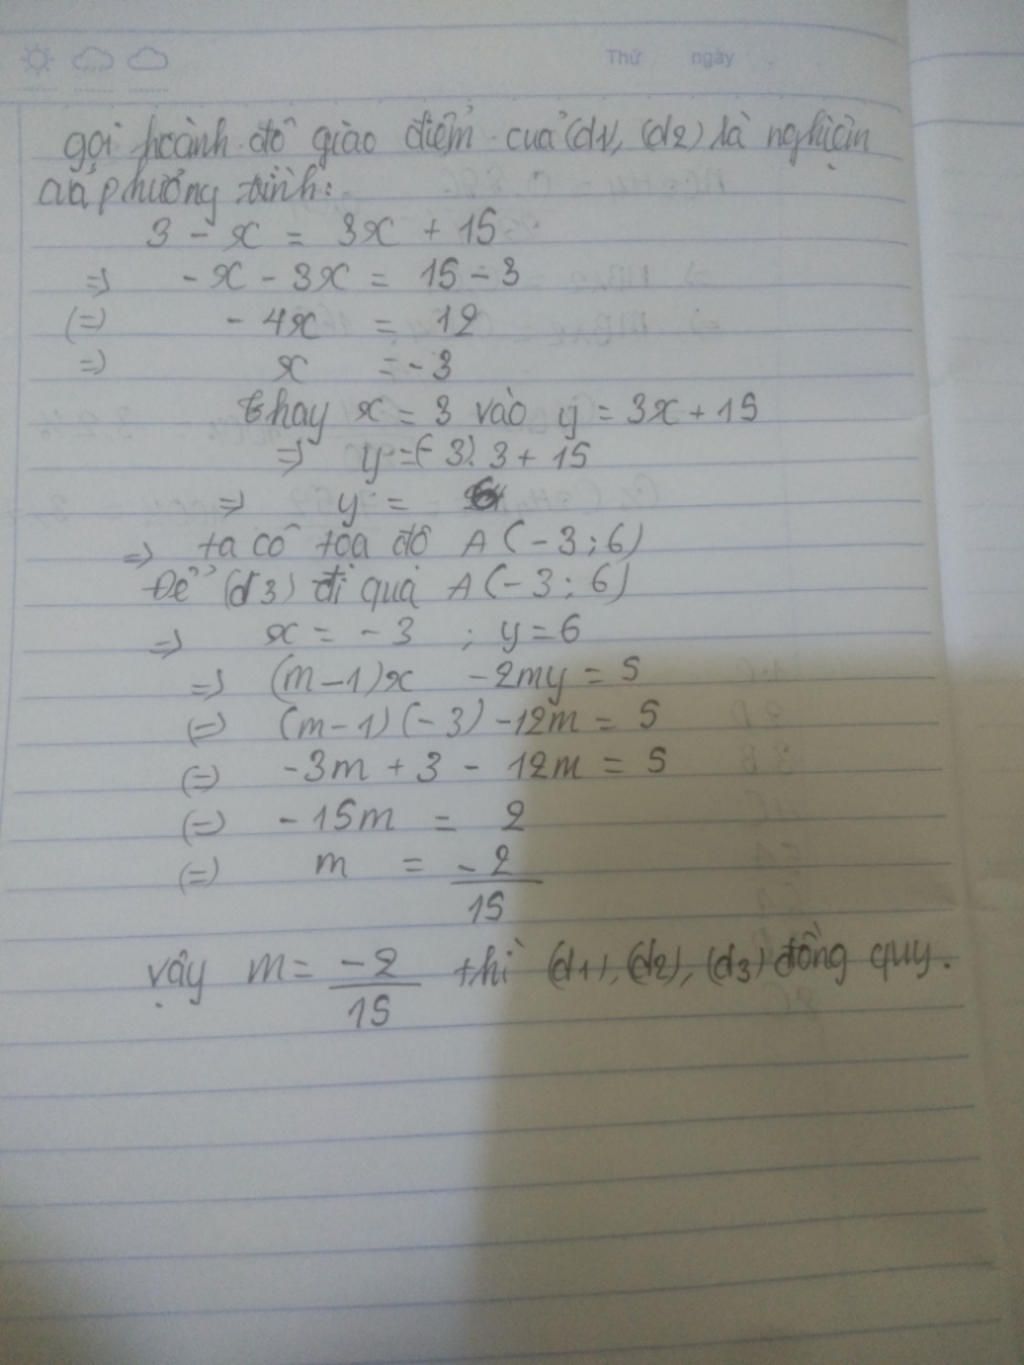 Thứ ngày
gọi hoành độ giao điểm của (d1), (d2) là nghiệm
của phương trình:
3 - x = 3x + 15
=> -x - 3x = 15 - 3
(=) - 4x = 12
=> x = -3
thay x = 3 vào y = 3x + 15
=> y = (-3).3 + 15
=> y = 6
=> ta có tọa độ A(-3;6)
Để (d3) đi qua A(-3;6)
=> x = -3 ; y = 6
=> (m-1)x - 2my = 5
(=) (m-1)(-3) - 12m = 5
(=) -3m + 3 - 12m = 5
(=) -15m = 2
(=) m = -2/15
vậy m = -2/15 thì (d1), (d2), (d3) đồng quy.